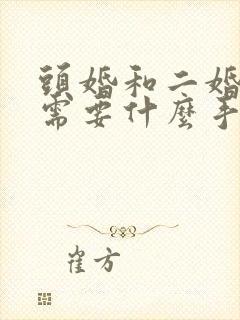 頭婚和二婚
需要什麼手
崔方